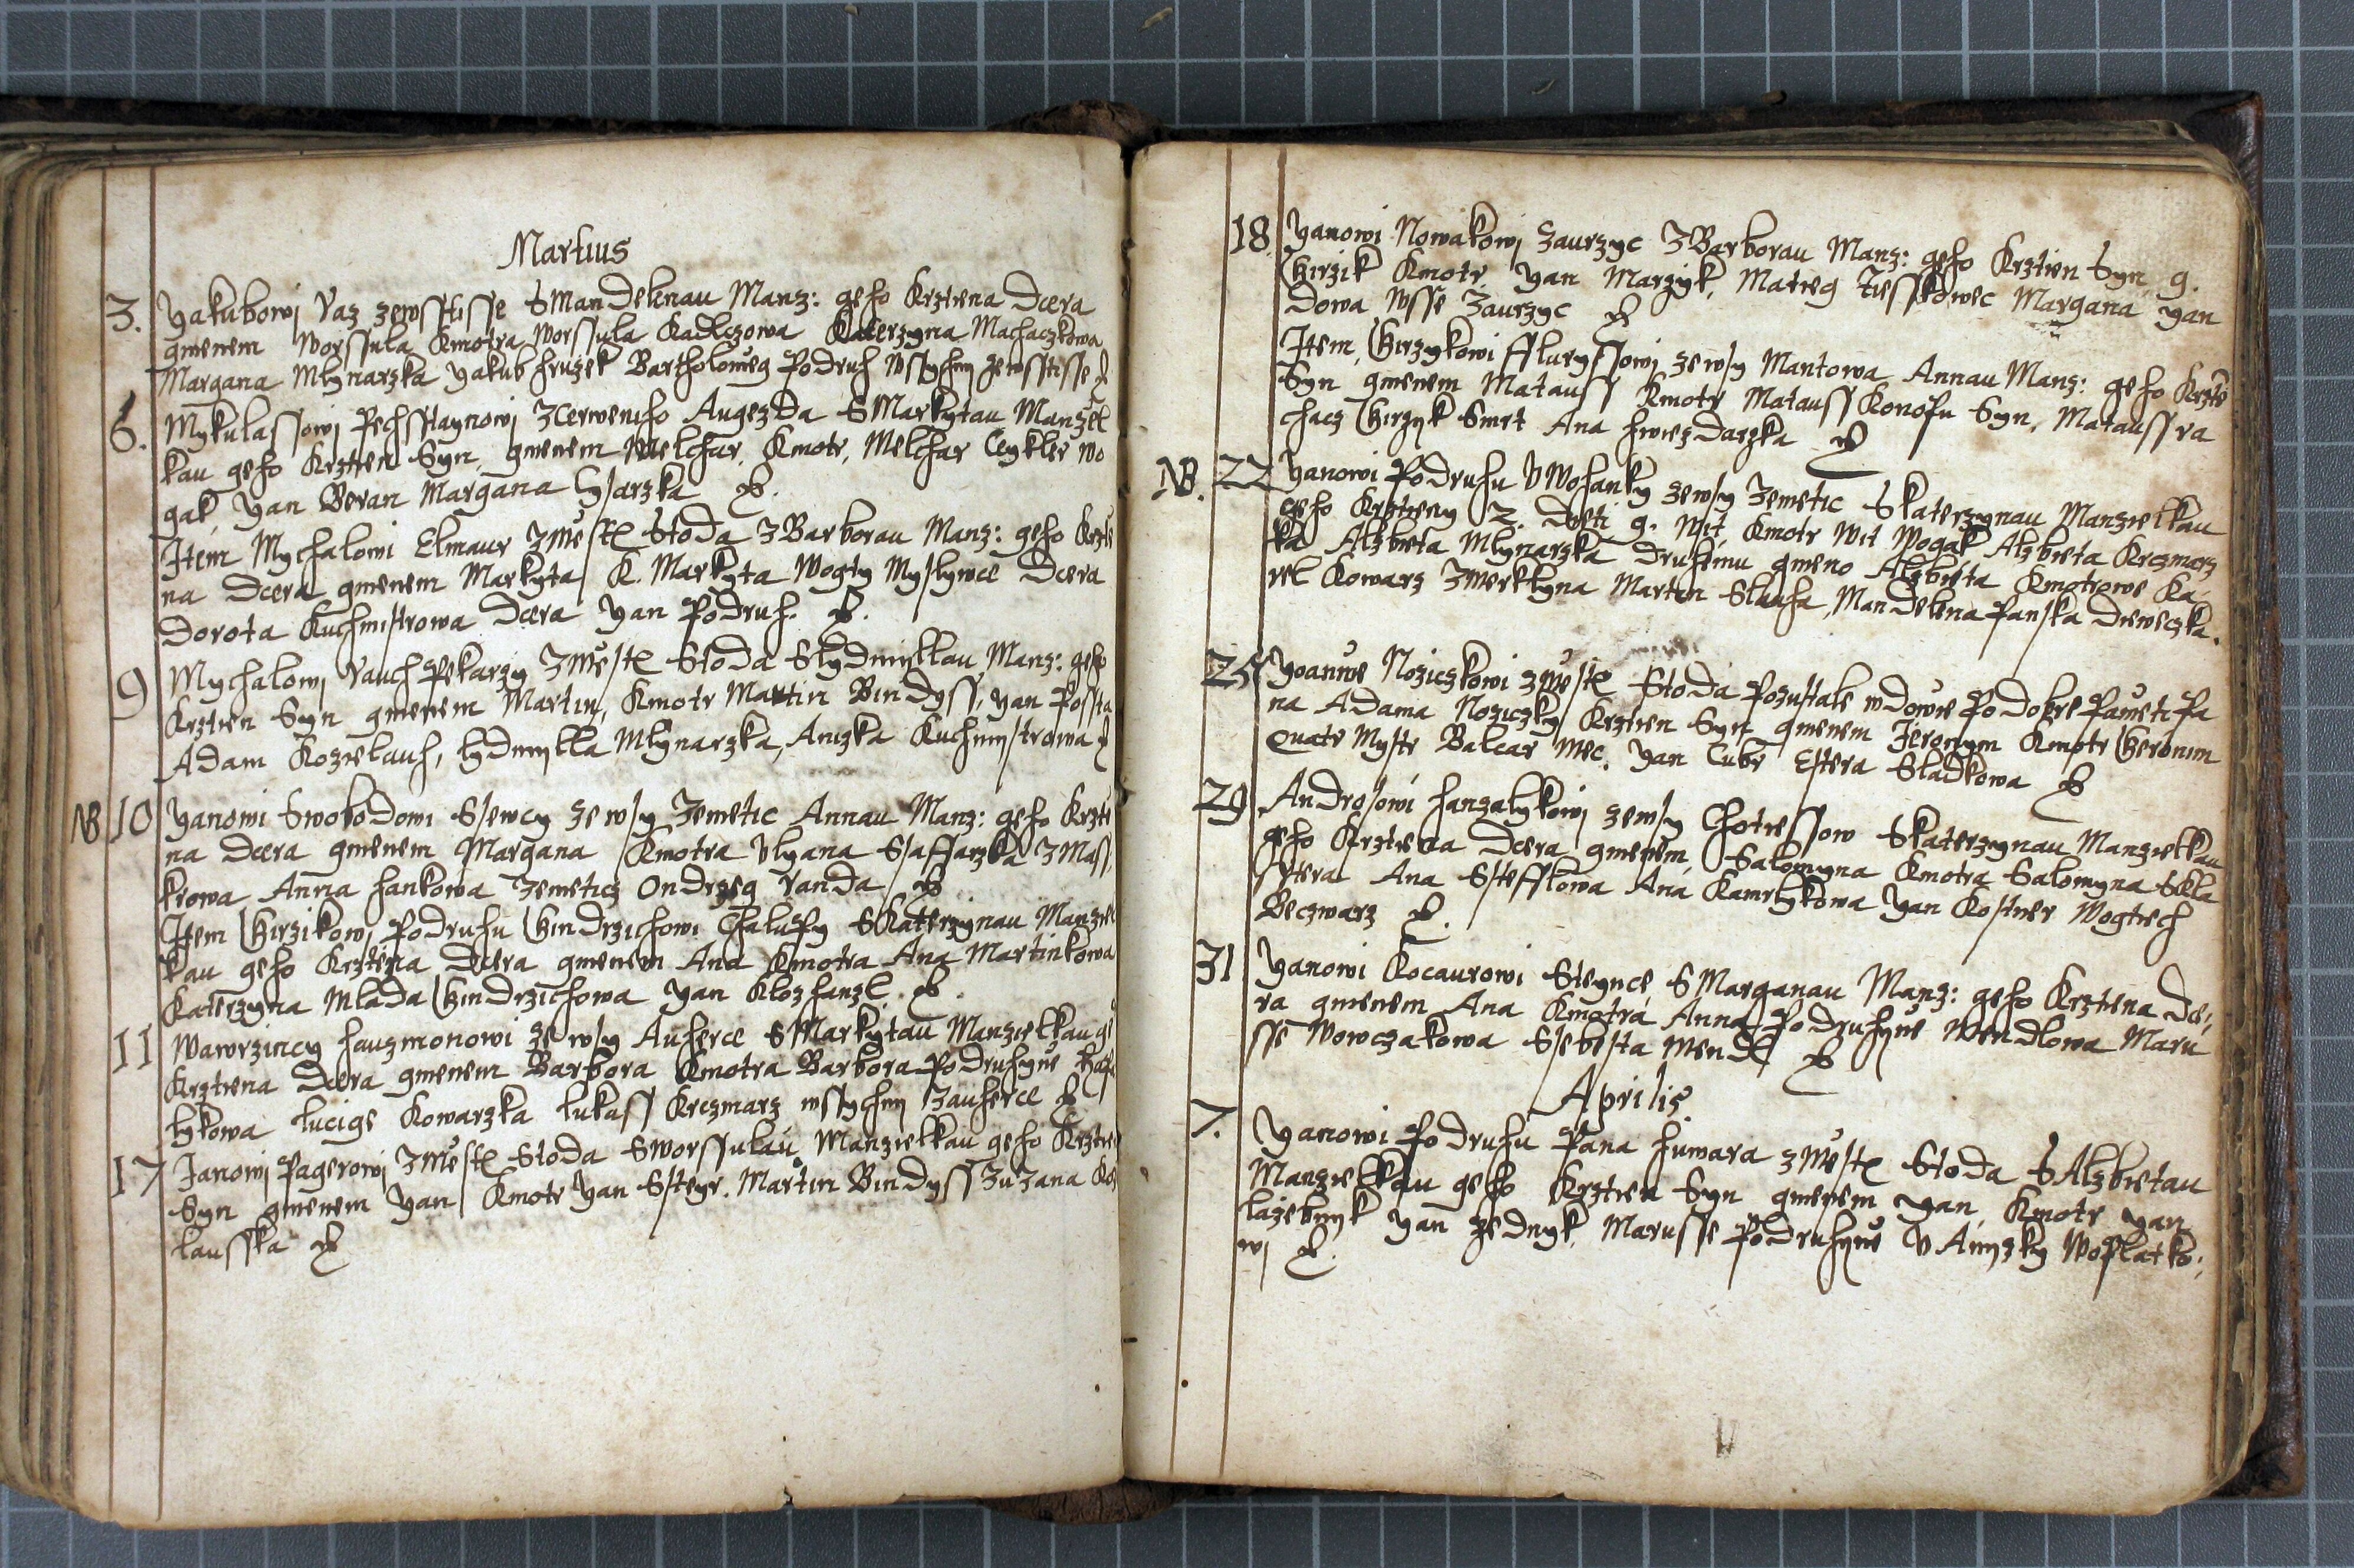 Martius
3. Yakubowj Raz zewsstisse S Mandelenau Manz: geho Krztiena Dcera
gmenem Worssula Kmotra Worssula Kadlczowa Katerzyna Machaczkowa
Margana Mlynarzka Yakub Hruzek Bartholomeg Podruh wstychny zewsstisse
6. Mykulassowj Pechsstaynowj Zczerweneho Augezda S Markytau Manzel
kau geho Krztien Syn gmenem Melchar, Kmotr, Melchar Ceykler Wo
gak, Yan Beran Margana
Item Mychalowi Elmaur Zmiestr Stoda Z Barborau Manz: geho Krztie
na Dcera gmenem Markyta K. Markyta Wogty Myslywce Dcera
Dorota Kuchmistrowa Dcera Yan Podruh.
9 Mychalowj Rauch Pekarzy Zmiestr Stoda S Lydmyllau Manz: geho
Krztien Syn gmenem Martin, Kmotr Martin Bindyss, Yan Possta
Adam Kozielauh, Lydmylla Mlynarzka, Anzka Kuchmystrowa
NB 10 Yanowi Swobodowi Ssewcy ze wsy Zemetic Annau Manz: geho Krztie
na Dcera gmenem Margana Kmotra Ulyana Ssaffarzka Z Mass
krowa Anna Hankowa Zemeticz Ondrzeg Randa
Item Girzikowj Podruhu Gindrzichowi Chalupy S Katerzynau Manziel
kau geho Krztiena Dcera gmenem Ana Kmotra Ana Martinkowa
Katerzyna Mlada Gindrzichowa Yan Klozhanzl.
11 Wawrzincy Hauzmonowi ze wsy Auherce S Markytau Manzielkau ge
Krztiena Dcera gmenem Barbora Kmotra Barbora Podruhyne
lykowa Lucige Kowarzka Lukass Krczmarz wstychny Zauherce
17 Janowj Pagerowj Zmiestr Stoda S Worssulau Manzielkau geho Krztien
Syn gmenem Yan Kmotr Yan Ssteyr. Martin Bindyss Zuzana Ko
lausska
18 Yanowi Nowakowj Zaurzyc Z Barborau Manz: geho Krztien Syn g.
Girzik Kmotr, Yan Marzyk, Matieg Tiesskowec Margana Yan
dowa Wsse Zaurzyc
Item, Girzykowi Ffluryssowj ze wsy Mantowa Annau Manz: geho Krztie
Syn gmenem Matauss Kmotr Matauss Konohu Syn, Matauss Ra
chacz Girzyk Smrt Ana Hwiezdarzka
NB. 22 Yanowi Podruhu U Wohanky ze wsy Zemetic S Katerzynau Manzielkau
geho Krztieny 2. Dieti g. Wit, Kmotr Wit Wogak Alzbieta Krczmarz
ka Alzbieta Mlynarzka Druhemu gmeno Alzbieta Kmotrowe Ka
rel Kowarz Zmerklyna Martin Slauha, Mandelena Panska Dieweczka.
25 Yoanne Noziczkowi Zmiestr Stoda Pozustale wdowie Podobre Pamieti Pa
na Adama Noziczky Krztien Syn gmenem Jeronym Kmotr Geronim
Quatr Mystr Balcar Mec. Yan Cubr Estera Sladkowa
29 Androsowi Hanzalykowj ze wsy Chotiessow S Katerzynau Manzielkau
geho Krztiena Dcera gmenem Salomyna Kmotra Salomyna Skla
Ana Sstefflowa Ana Kamrlykowa Yan Kostner Wogtiech
Beczwarz
31 Yanowi Kocaurowi Steynce S Marganau Manz: geho Krztiena Dce,
ra gmenem Ana Kmotra Anna Podruhyne Wendlowa Maru
sse Wowczakowa Ssebesta Mendl
Aprilis.
7. Yanowi Podruhu Pana Humara Zmiestr Stoda S Alzbietau
Manzielkau geho Krztien Syn gmenem Yan, Kmotr Yan
Lazebnyk Yan Zednyk, Marusse Podruhyne U Anyzky Woplatko,
wj